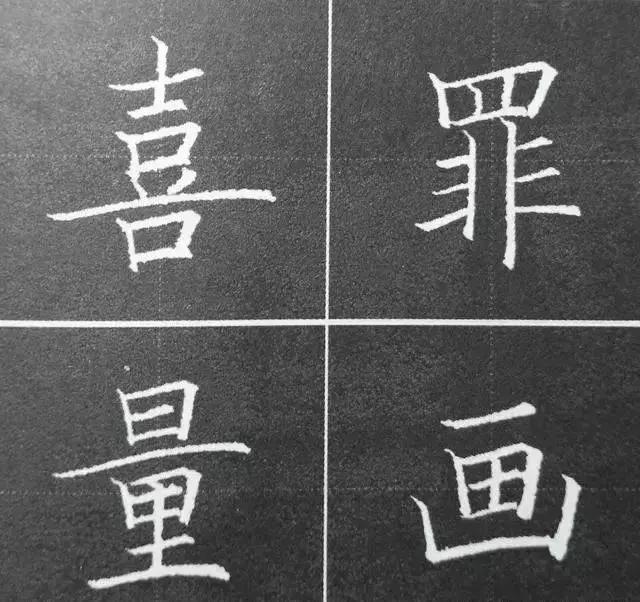 喜罪
量画